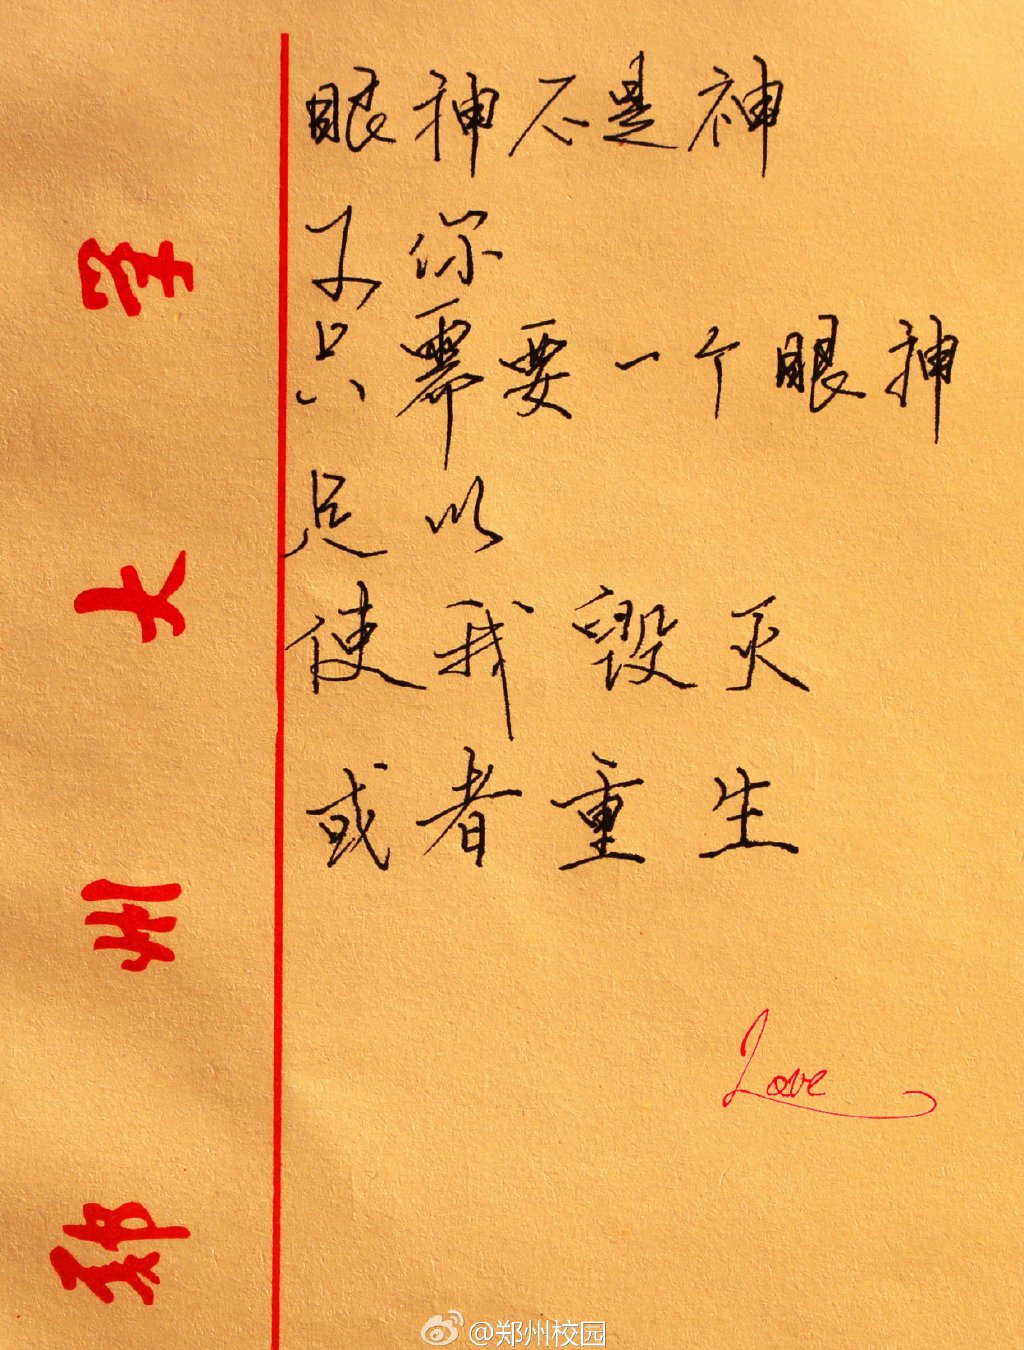 眼神不是神
又你
只需要一个眼神
足以
使我毁灭
或者重生
Love
郑州大学
@郑州校园